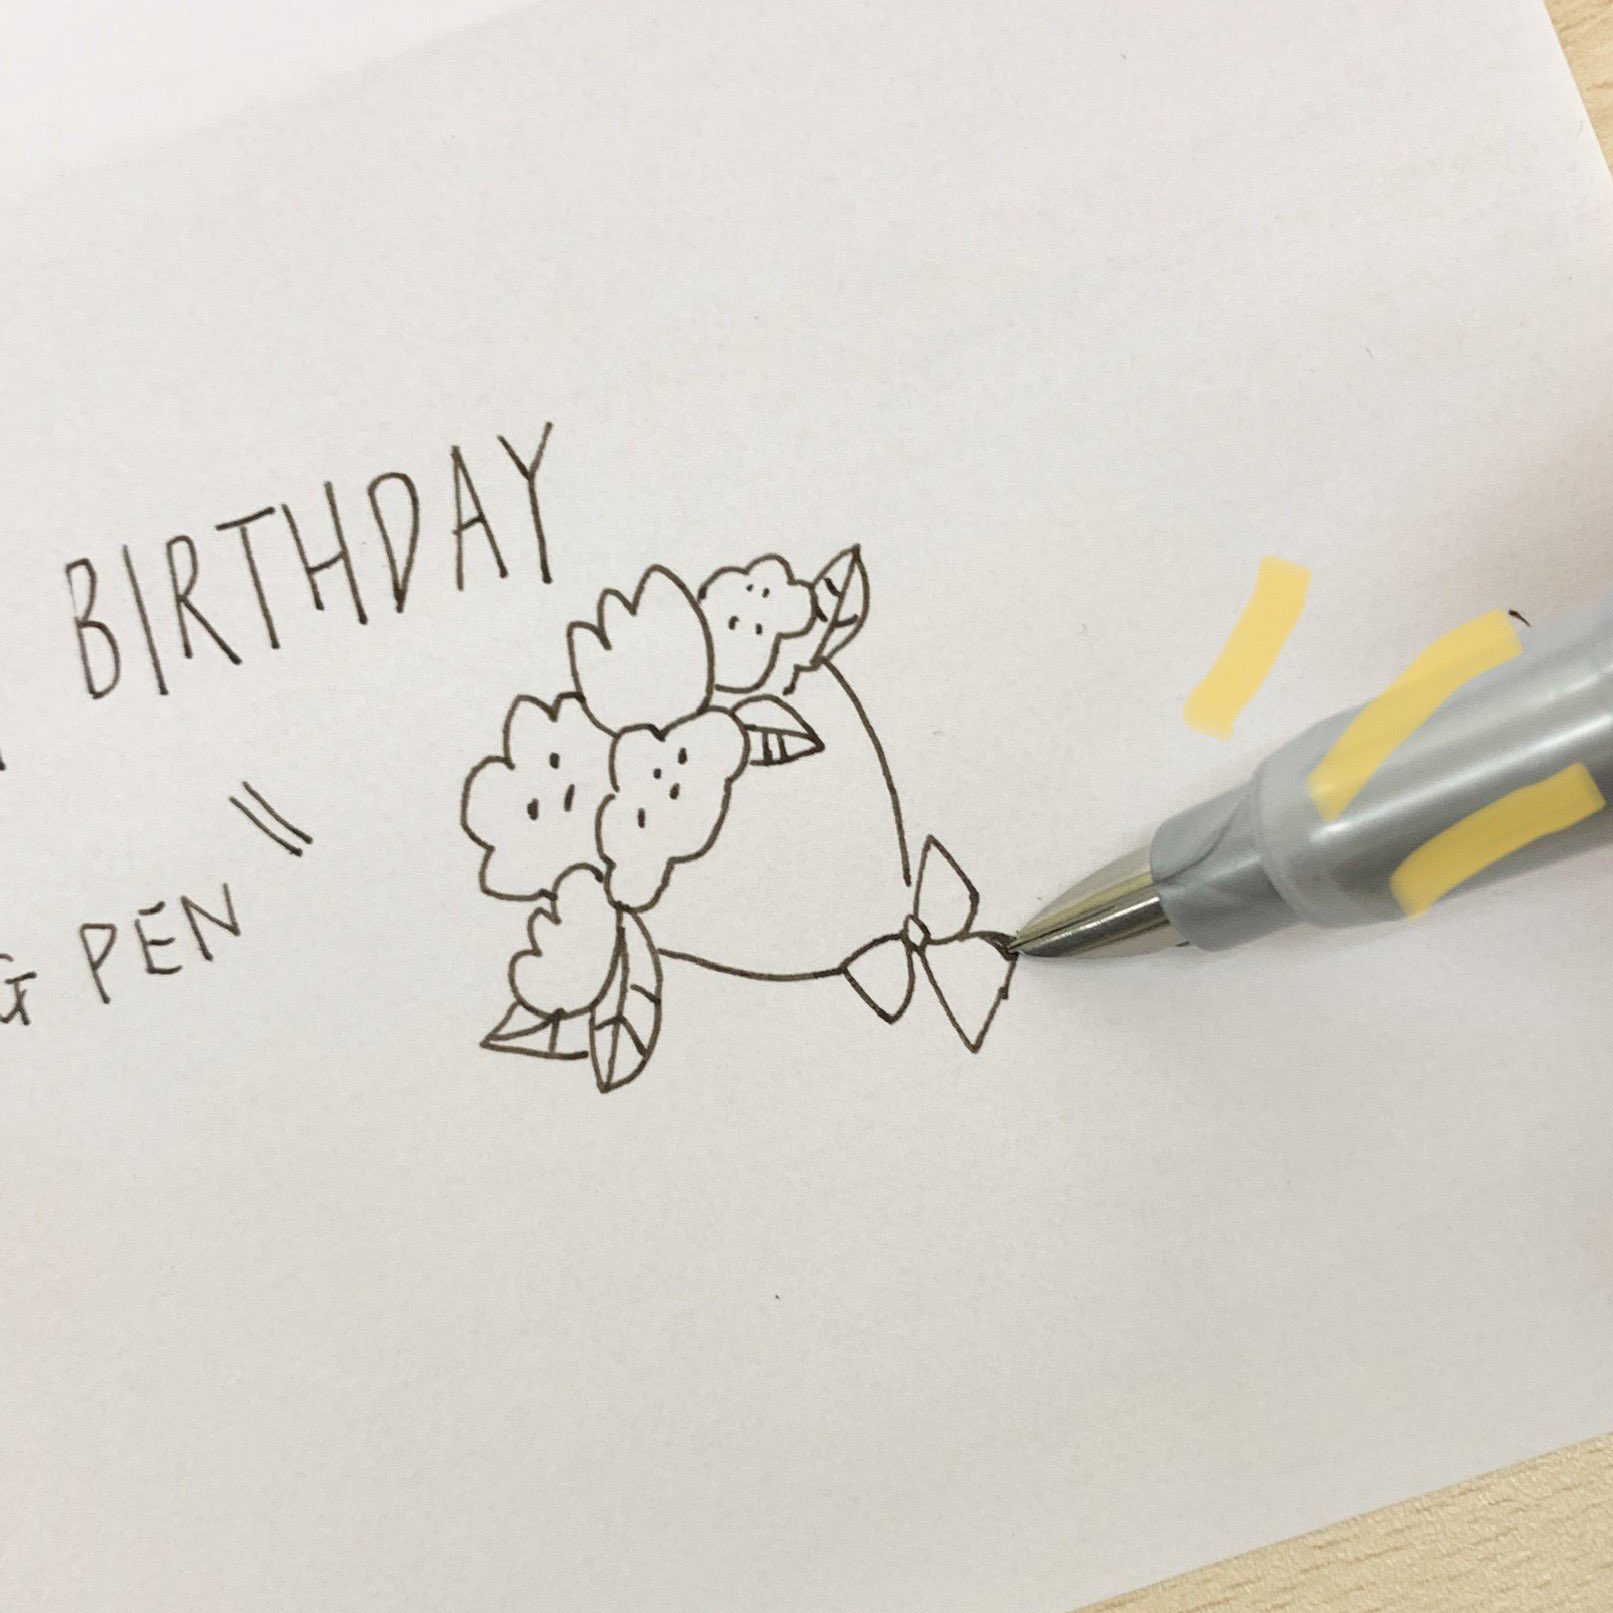 BIRTHDAY
G PEN